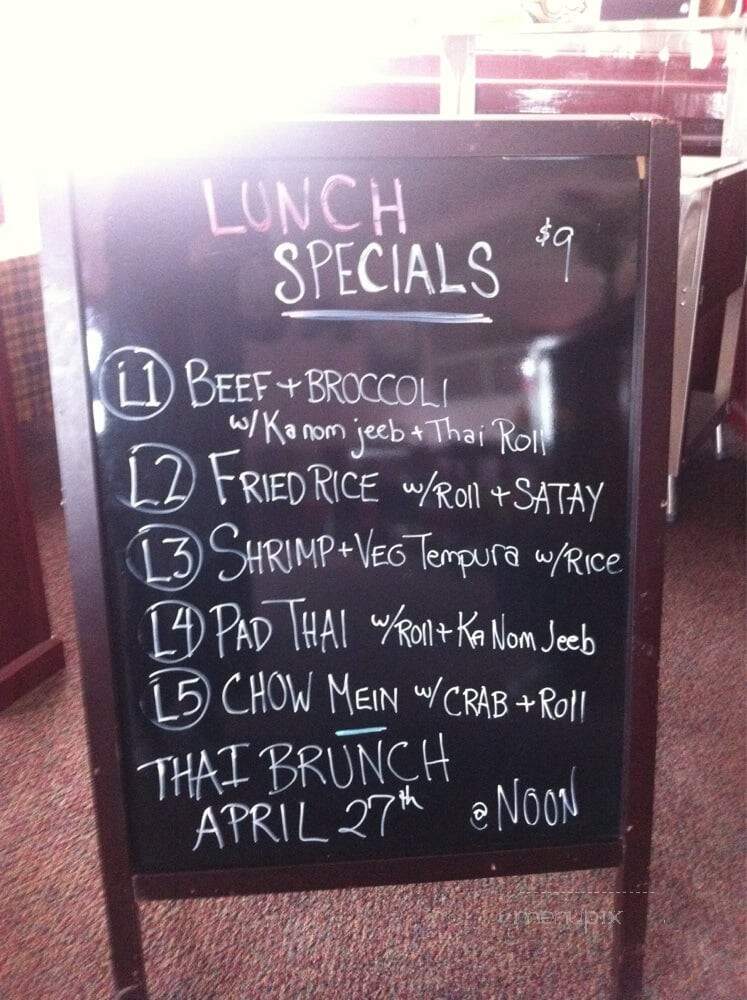 LUNCH
SPECIALS $9
L1 BEEF + BROCCOLI
w/ Ka nom jeeb + Thai Roll
L2 FRIED RICE w/Roll + SATAY
L3 SHRIMP + VEG Tempura w/Rice
L4 PAD THAI w/Roll + Ka Nom Jeeb
L5 CHOW MEIN w/ CRAB + Roll
THAI BRUNCH
APRIL 27th @ NOON
menupix